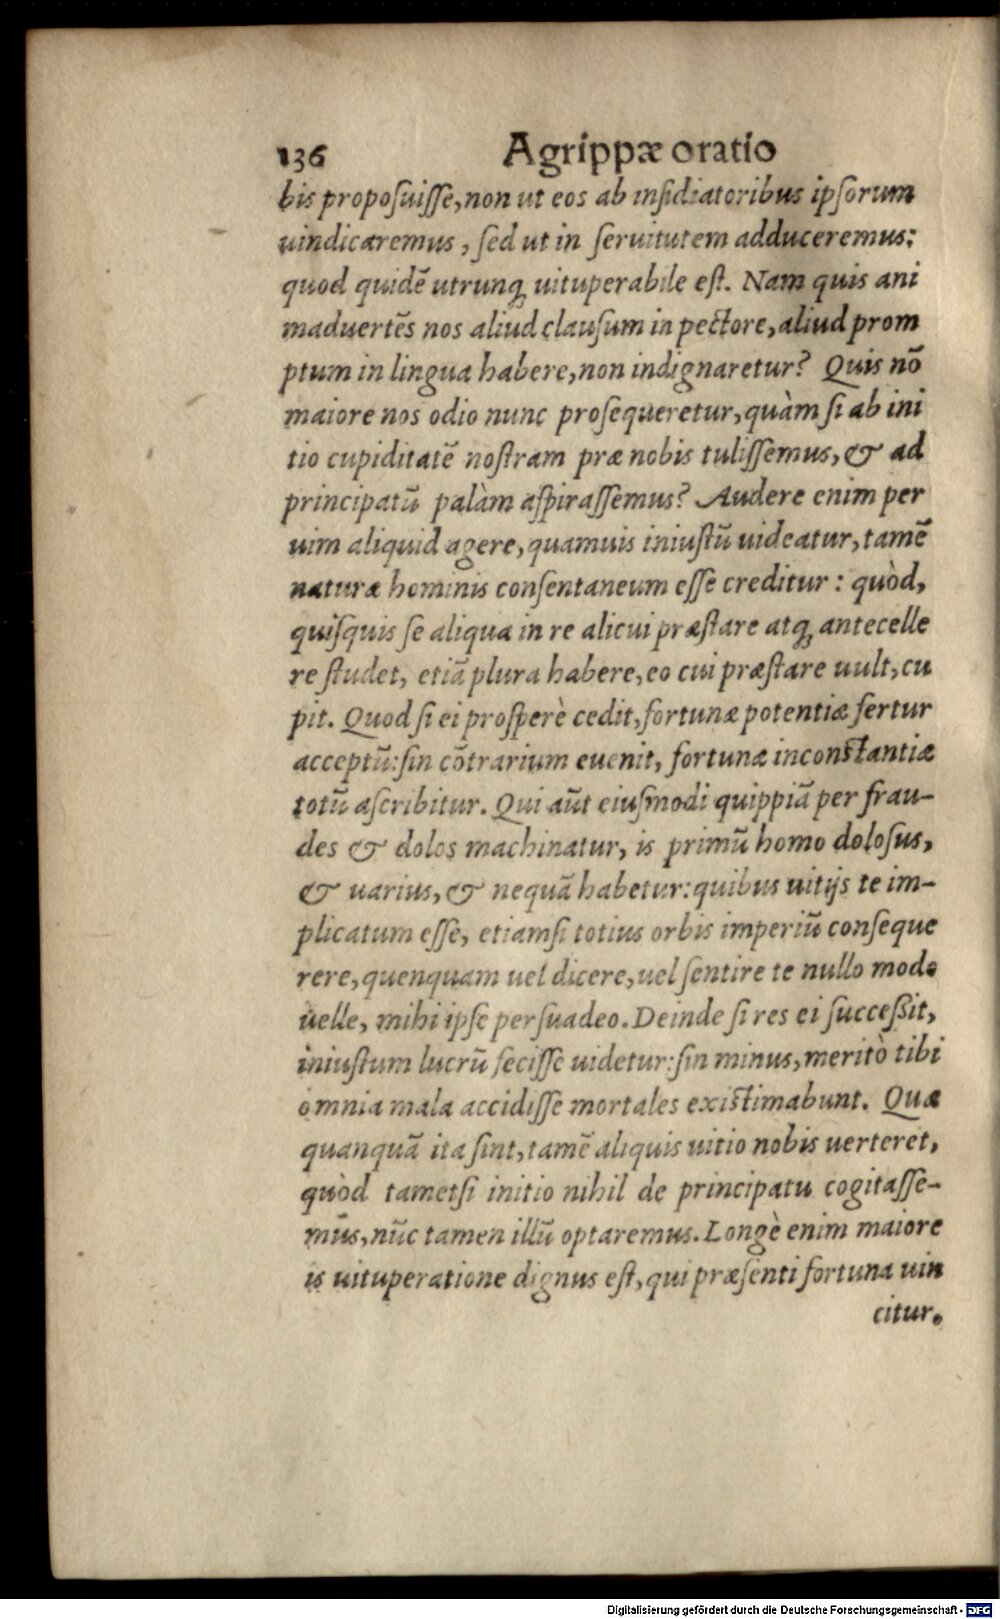 136 Agrippæ oratio
bis proposuisse, non ut eos ab insidiatoribus ipsorum
uindicaremus, sed ut in seruitutem adduceremus:
quod quidē utrunq; uituperabile est. Nam quis ani
maduertēs nos aliud clausum in pectore, aliud prom
ptum in lingua habere, non indignaretur? Quis nō
maiore nos odio nunc prosequeretur, quàm si ab ini
tio cupiditatē nostram præ nobis tulissemus, & ad
principatū palàm aspirassemus? Audere enim per
uim aliquid agere, quamuis iniustū uideatur, tamē
naturæ hominis consentaneum esse creditur: quòd,
quisquis se aliqua in re alicui præstare atq; antecelle
re studet, etiā plura habere, eo cui præstare uult, cu
pit. Quod si ei prosperè cedit, fortunæ potentiæ fertur
acceptū: sin cōtrarium euenit, fortunæ inconstantiæ
totū ascribitur. Qui aūt eiusmodi quippiā per frau-
des & dolos machinatur, is primū homo dolosus,
& uarius, & nequā habetur: quibus uitijs te im-
plicatum esse, etiamsi totius orbis imperiū conseque
rere, quenquam uel dicere, uel sentire te nullo modo
uelle, mihi ipse persuadeo. Deinde si res ei succeßit,
iniustum lucrū fecisse uidetur: sin minus, meritò tibi
omnia mala accidisse mortales existimabunt. Quæ
quanquā ita sint, tamē aliquis uitio nobis uerteret,
quòd tametsi initio nihil de principatu cogitasse-
mus, nūc tamen illū optaremus. Longè enim maiore
is uituperatione dignus est, qui præsenti fortuna uin
citur.
Digitalisierung gefördert durch die Deutsche Forschungsgemeinschaft - DFG